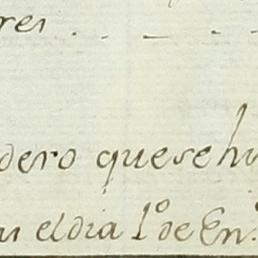 res . . _ . .
dero que se hi
n el dia 1.º de En.º